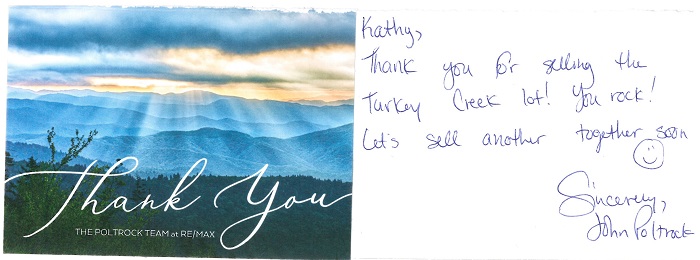 Thank You
THE POLTROCK TEAM at RE/MAX
Kathy,
Thank you for selling the
Turkey Creek lot! You rock!
Let's sell another together soon
Sincerely,
John Poltrock